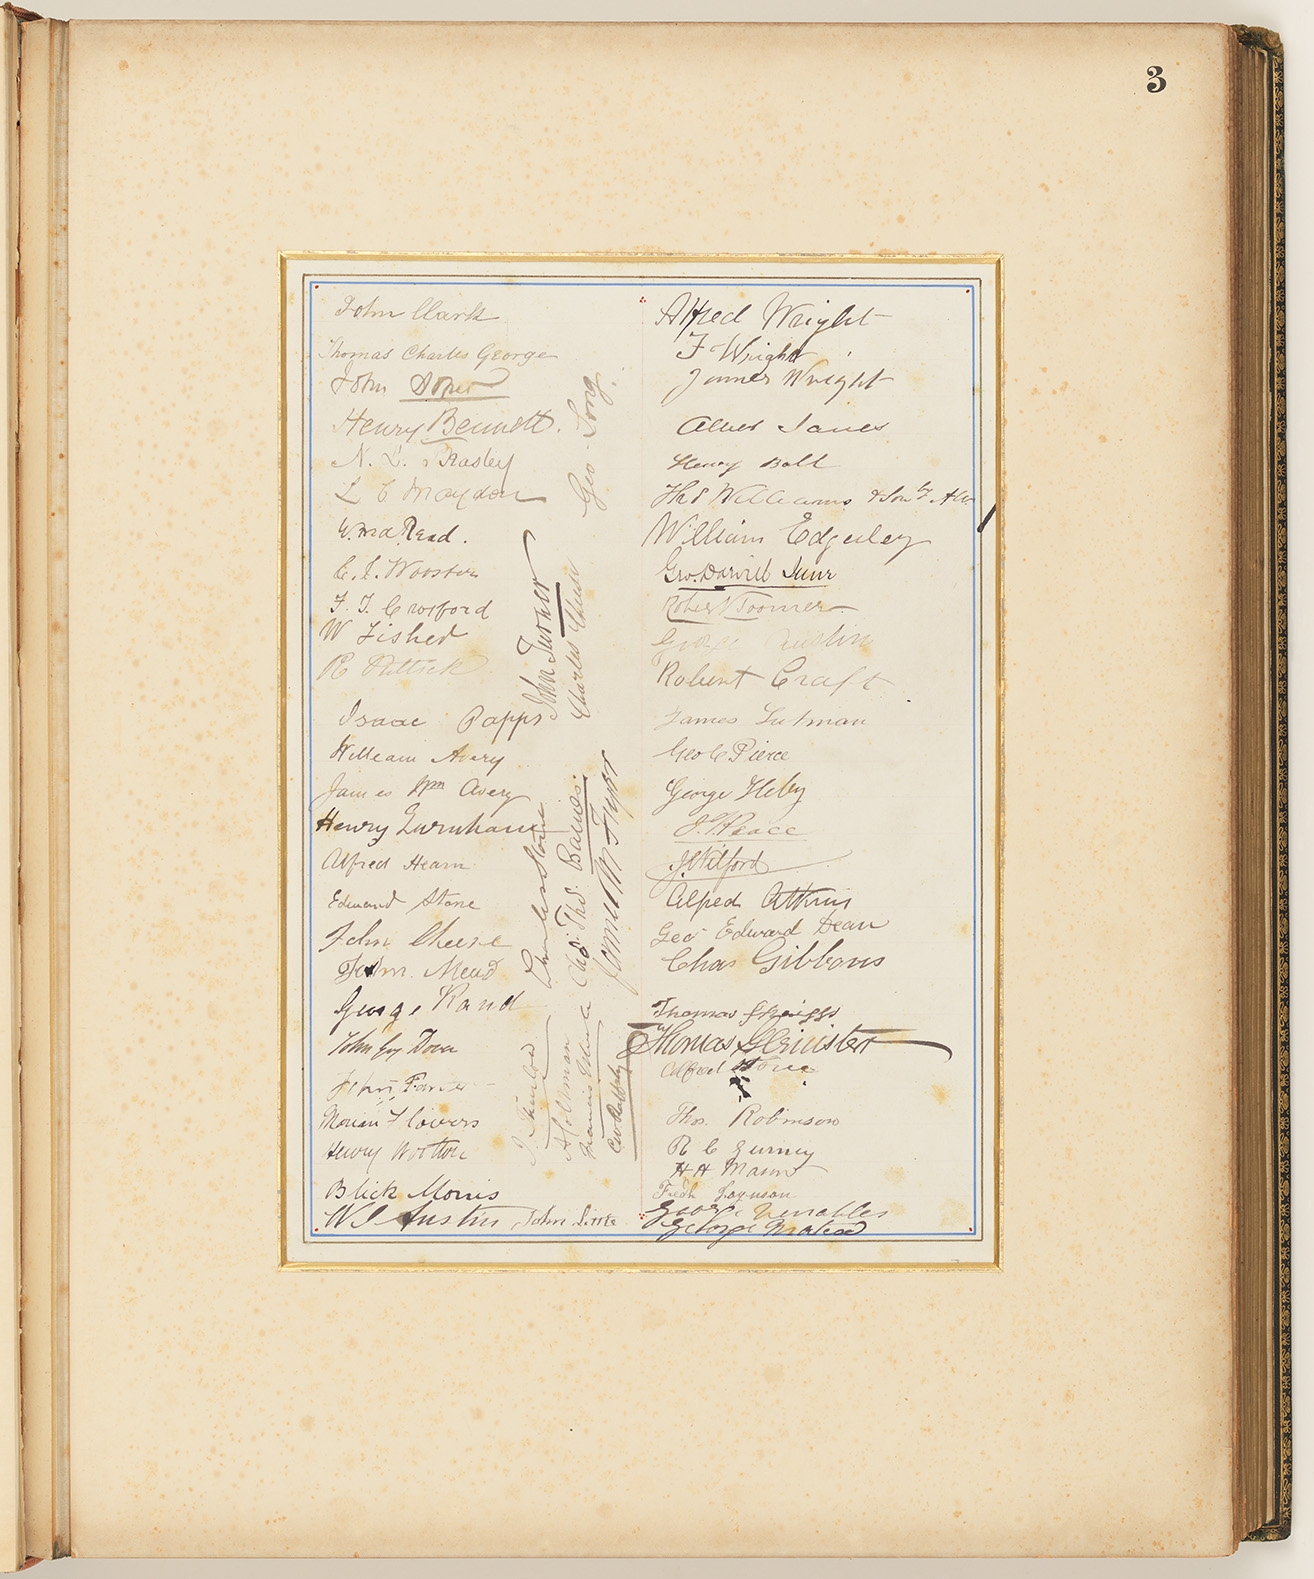 3
John Clark
Thomas Charles George
John Soper
Henry Bennett.
N. L.
L C Maydon
Wm. Read.
C. J. Wooster
F. J. Crosford
W Fisher
R Puttick
Isaac Papps
William Avery
James Wm Avery
Henry Burnham
Alfred Hearn
Edward Stone
John Cheese
John. Mead
George Rand
John Guy Dover
John
Flowers
Henry Wootton
Blick Morris
W J Austin
John Little
Geo. Long.
John Turner
Charles Cheese
Charles Stone
Chas. Thos. Baines.
James W Tyer
J.
A Holtman
Francis
Alfred Wright
F Wright
James Wright
Henry Ball
Thos Williams & Son by AW.
William Edgerley
Geo. Darvill Junr
Robert Toomer
George Austin
Robert Craft
James Lutman
Geo C Pierce
George Heby
J. Peace
J. Wilford
Alfred Atkins
Geo Edward Dean
Chas Gibbons
Thomas Spriggs
Thomas Gleinister
Alfred Stone
Thos. Robinson
R C Gurney
H H Mason
Fredk
George Venables
George